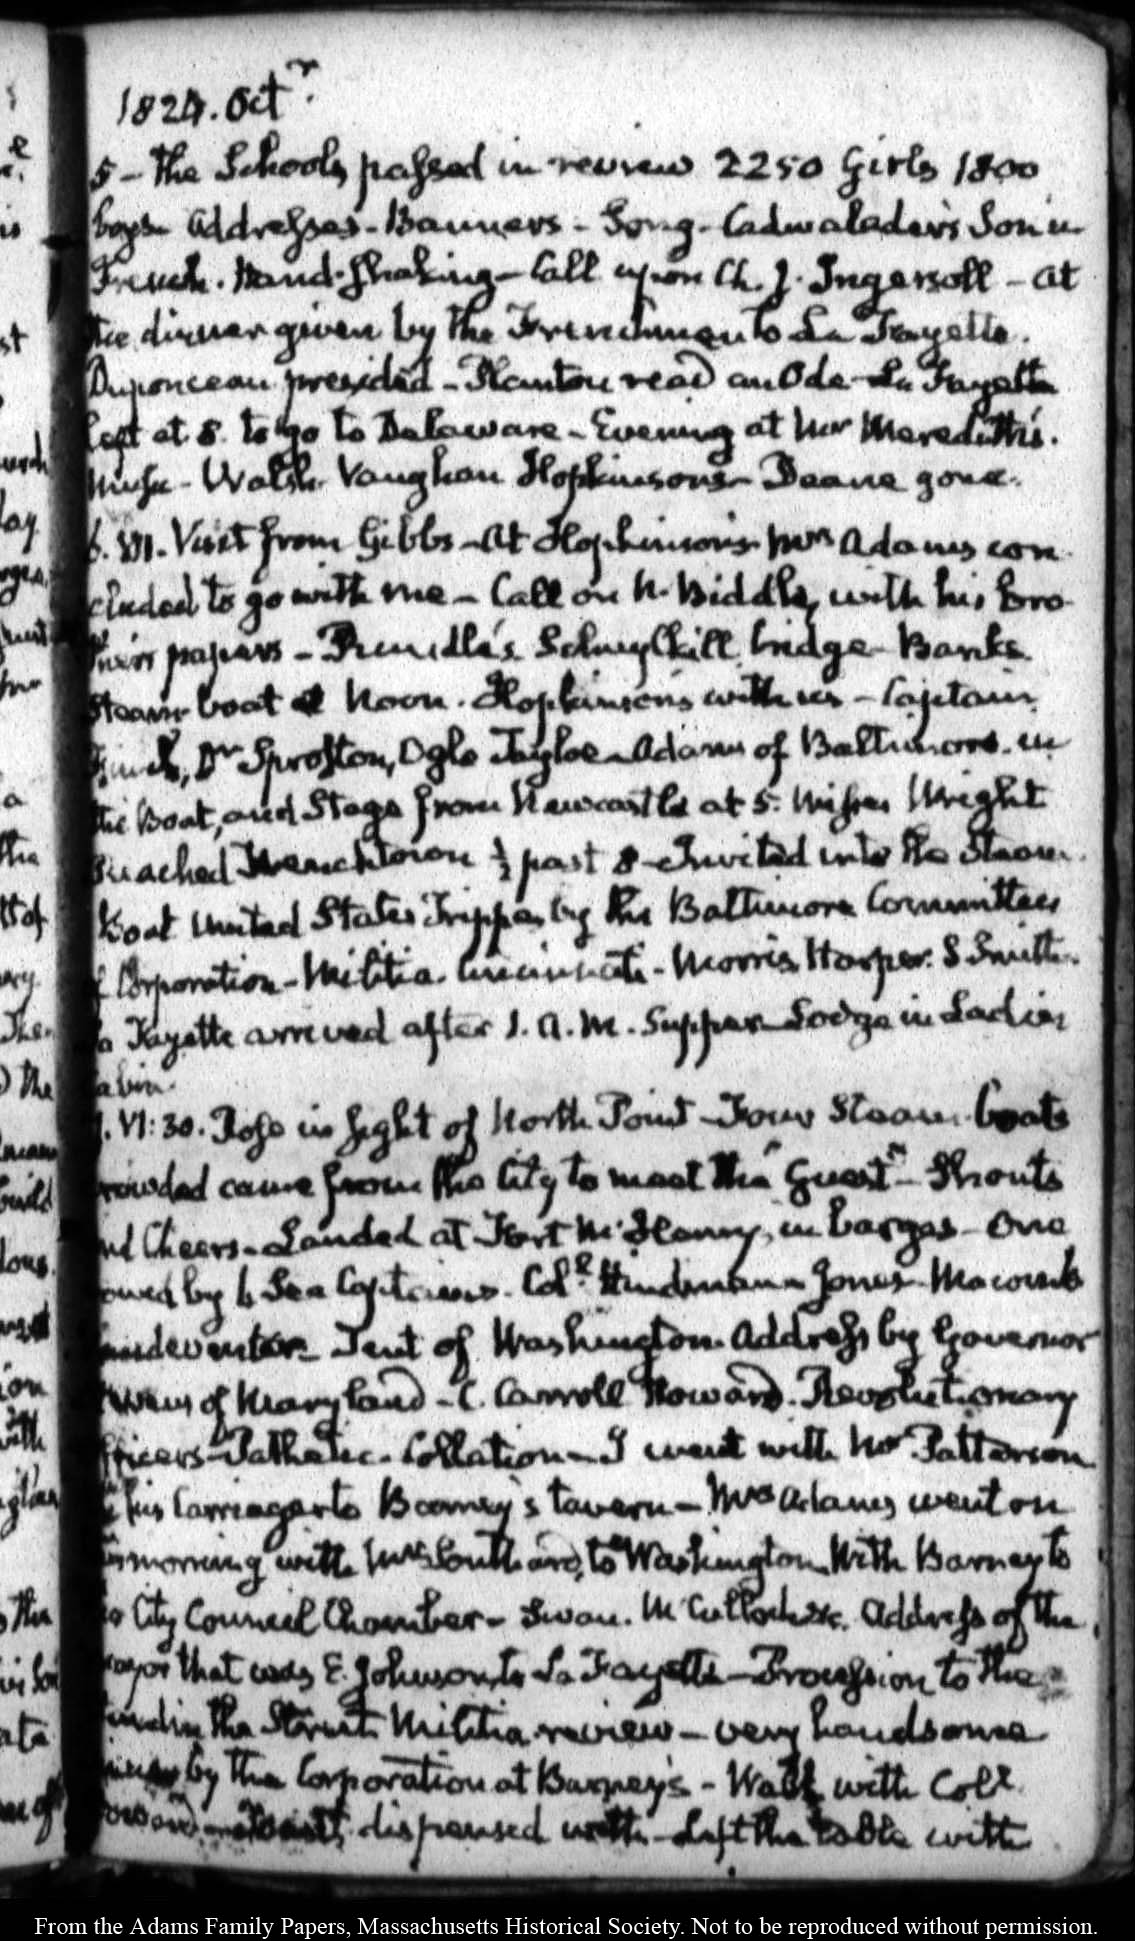 1824. Octr.
5 – The Schools passed in review 2250 Girls 1800
boys – Addresses – Banners – Song – Cadwalader's Son in
French. Hand-shaking – Call upon Ch. J. Ingersoll – at
the dinner given by the Frenchmen to La Fayette.
Duponceau presided – Planton read an Ode – La Fayette
left at 8. to go to Delaware – Evening at Mr Meredith's.
Music – Walsh. Vaughan Hopkinsons – Deane gone.
6. VII. Visit from Gibbs – At Hopkinson's. Mrs Adams con-
cluded to go with me – Call on N. Biddle, with his bro-
ther's papers – Schuylkill bridge – Banks
Steam boat at Noon. Hopkinson's with us – Captain
Finch, Dr Sproston, Ogle Tayloe – Adams of Baltimore. in
the Boat, and Stage from Newcastle at 5. Misses Wright
Reached Frenchtown ½ past 8 – Invited into the Steam
boat United States Trippe, by the Baltimore Committees
of Corporation – Militia. Cincinnati – Morris, Harper. S Smith.
La Fayette arrived after 1. A.M. Supper – Lodge in Ladies
Cabin.
7. VI:30. Rose in sight of North Point – Four Steam-boats
crowded came from the City to meet the "Guest" – Shouts
and Cheers – Landed at Fort McHenry, in barges – One
rowed by 6 Sea Captains. Coll. Hindman – Jones – Macomb
Vandeventer – Tent of Washington. Address by Governor
Stevens of Maryland – C. Carroll Howard. Revolutionary
Officers – Pathetic – Collation – I went with Mr Patterson
in his Carriage to Barney's tavern – Mrs Adams went on
this morning with Mrs Southard, to Washington. With Barney to
the City Council Chamber – Swan. McCulloch &c. Address of the
Mayor that was E. Johnson to La Fayette – Procession to the
in the Street. Militia review – very handsome
dinner by the Corporation at Barney's – Walk with Coll.
Howard – Toasts dispensed with – Left the table with
From the Adams Family Papers, Massachusetts Historical Society. Not to be reproduced without permission.